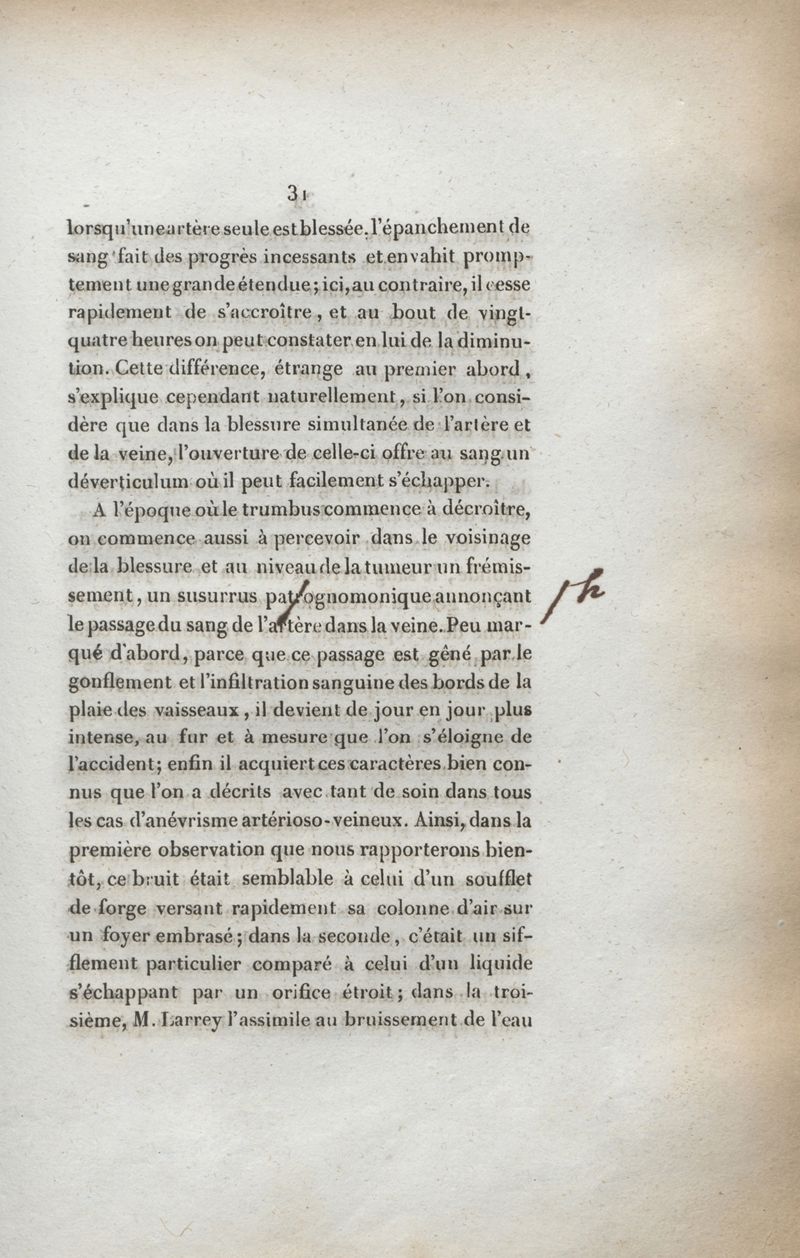 31
lorsqu'une artère seule est blessée. l'épanchement de
sang fait des progrès incessants et envahit promp-
tement une grande étendue; ici, au contraire, il cesse
rapidement de s'accroître, et au bout de vingt-
quatre heures on peut constater en lui de la diminu-
tion. Cette différence, étrange au premier abord,
s'explique cependant naturellement, si l'on consi-
dère que dans la blessure simultanée de l'artère et
de la veine, l'ouverture de celle-ci offre au sang un
déverticulum où il peut facilement s'échapper.
A l'époque où le trumbus commence à décroître,
on commence aussi à percevoir dans le voisinage
de la blessure et au niveau de la tumeur un frémis-
sement, un susurrus patognomonique annonçant
h
le passage du sang de l'artère dans la veine. Peu mar-
qué d'abord, parce que ce passage est gêné par le
gonflement et l'infiltration sanguine des bords de la
plaie des vaisseaux, il devient de jour en jour plus
intense, au fur et à mesure que l'on s'éloigne de
l'accident; enfin il acquiert ces caractères bien con-
nus que l'on a décrits avec tant de soin dans tous
les cas d'anévrisme artérioso-veineux. Ainsi, dans la
première observation que nous rapporterons bien-
tôt, ce bruit était semblable à celui d'un soufflet
de forge versant rapidement sa colonne d'air sur
un foyer embrasé; dans la seconde, c'était un sif-
flement particulier comparé à celui d'un liquide
s'échappant par un orifice étroit; dans la troi-
sième, M. Larrey l'assimile au bruissement de l'eau